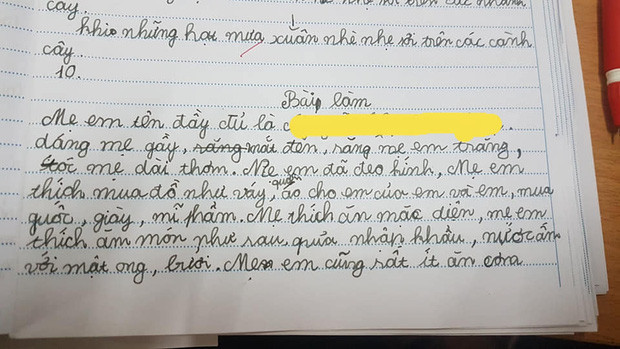 cây.
khio những hạt mưa xuân nhì nhẹ rơi trên các cành
cây.
10.
Bài làm
Mẹ em tên đầy đủ là
dáng mẹ gầy, mái đen, răng mẹ em trắng,
tóc mẹ dài thơm. Mẹ em đã đeo kính, Mẹ em
thích mua đồ như váy, quần áo cho em của em và em, mua
guốc, giày, mĩ phẩm. Mẹ thích ăn mặc diện, mẹ em
thích ăm món như sau quưa nhập khẩu, nước ấm
với mật ong, bưởi. Mẹ em cũng sất ít ăn cơm